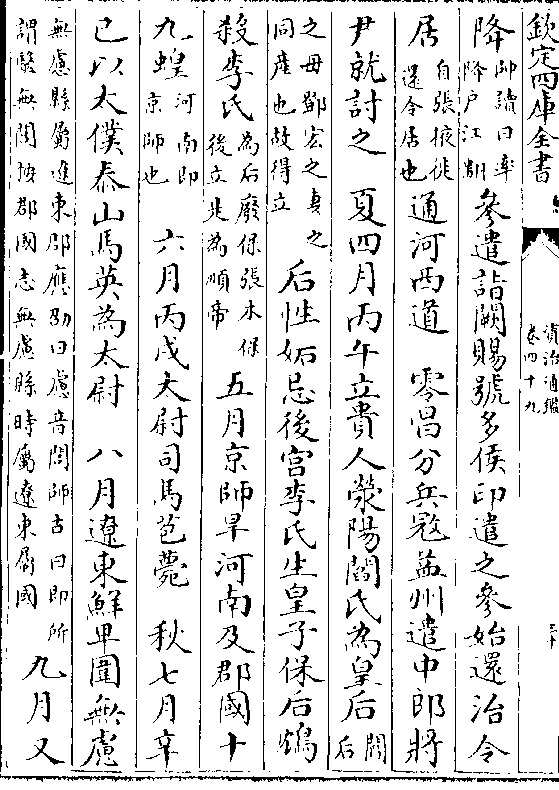 欽定四庫全書
資治通鑑
卷四十九
降師讀曰率降戶江翻參遣詣闕賜號多侯印遣之參始還治令
居自張掖徙還令居也通河西道 零昌分兵寇益州遣中郎將
尹就討之 夏四月丙午立貴人滎陽閻氏為皇后閻后
之母鄧宏之妻之同産也故得立后性妬忌後宮李氏生皇子保后鴆
殺李氏為后廢保張本保後立是為順帝五月京師旱河南及郡國十
九蝗河南即京師也 六月丙戌太尉司馬苞薨 秋七月辛
巳以太僕泰山馬英為太尉 八月遼東鮮卑圍無慮
無慮縣屬遼東郡應劭曰慮音閭師古曰即所謂醫無閭按郡國志無慮縣時屬遼東屬國九月又